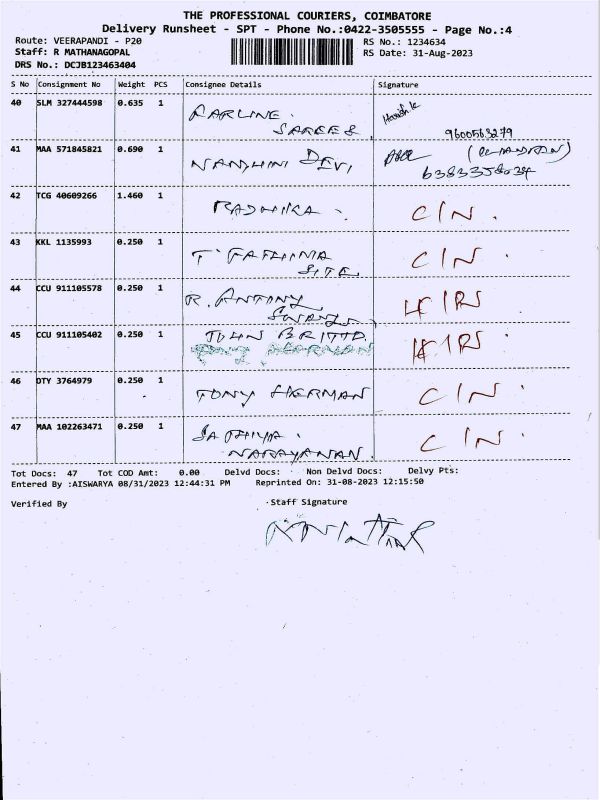 THE PROFESSIONAL COURIERS, COIMBATORE
Delivery Runsheet - SPT - Phone No.:0422-3505555 - Page No.:4
Route: VEERAPANDI - P20 RS No.: 1234634
Staff: R MATHANAGOPAL RS Date: 31-Aug-2023
DRS No.: DCJB123463404
S No Consignment No Weight PCS Consignee Details Signature
40 SLM 327444598 0.635 1 SAREES 9600563279
41 MAA 571845821 0.690 1 NANDHINI DEVI,
42 TCG 40609266 1.460 1 RADHIKA . C/N .
43 KKL 1135993 0.250 1 T. FATHIMA C/N .
44 CCU 911105578 0.250 1 R. ANTONY
45 CCU 911105402 0.250 1 JOHN BRITTO
46 DTY 3764979 0.250 1 TONY HERMAN C/N .
47 MAA 102263471 0.250 1 SATHIYA . C/N .
NARAYANAN .
Tot Docs: 47 Tot COD Amt: 0.00 Delvd Docs: Non Delvd Docs: Delvy Pts:
Entered By :AISWARYA 08/31/2023 12:44:31 PM Reprinted On: 31-08-2023 12:15:50
Verified By Staff Signature